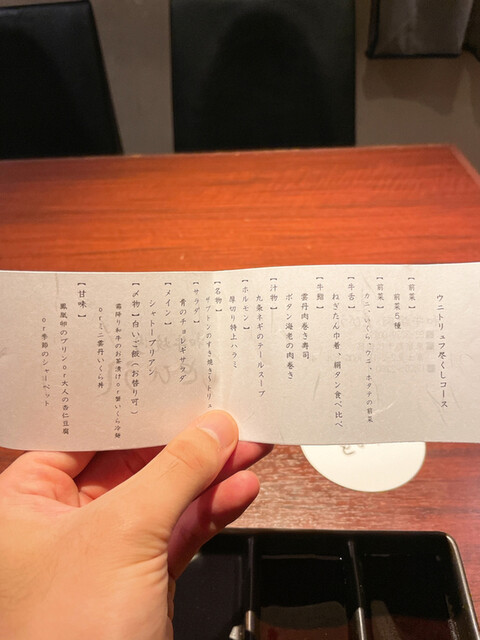 ウニトリュフ尽くしコース
【前菜】
前菜5種
【前菜】
カニ、いくら、ウニ、ホタテの前菜
【牛舌】
ねぎたん巾着、絹タン食べ比べ
【牛鮨】
雲丹肉巻き寿司
ボタン海老の肉巻き
【汁物】
九条ネギのテールスープ
【ホルモン】
厚切り特上ハラミ
【名物】
ザブトンのすき焼き〜トリュ
【サラダ】
青のチョレギサラダ
【メイン】
シャトーブリアン
【〆物】白いご飯(お替り可)
霜降り和牛のお茶漬けor蟹いくら冷麺
orミニ雲丹いくら丼
【甘味】
鳳凰卵のプリンor大人の杏仁豆腐
or季節のシャーベット